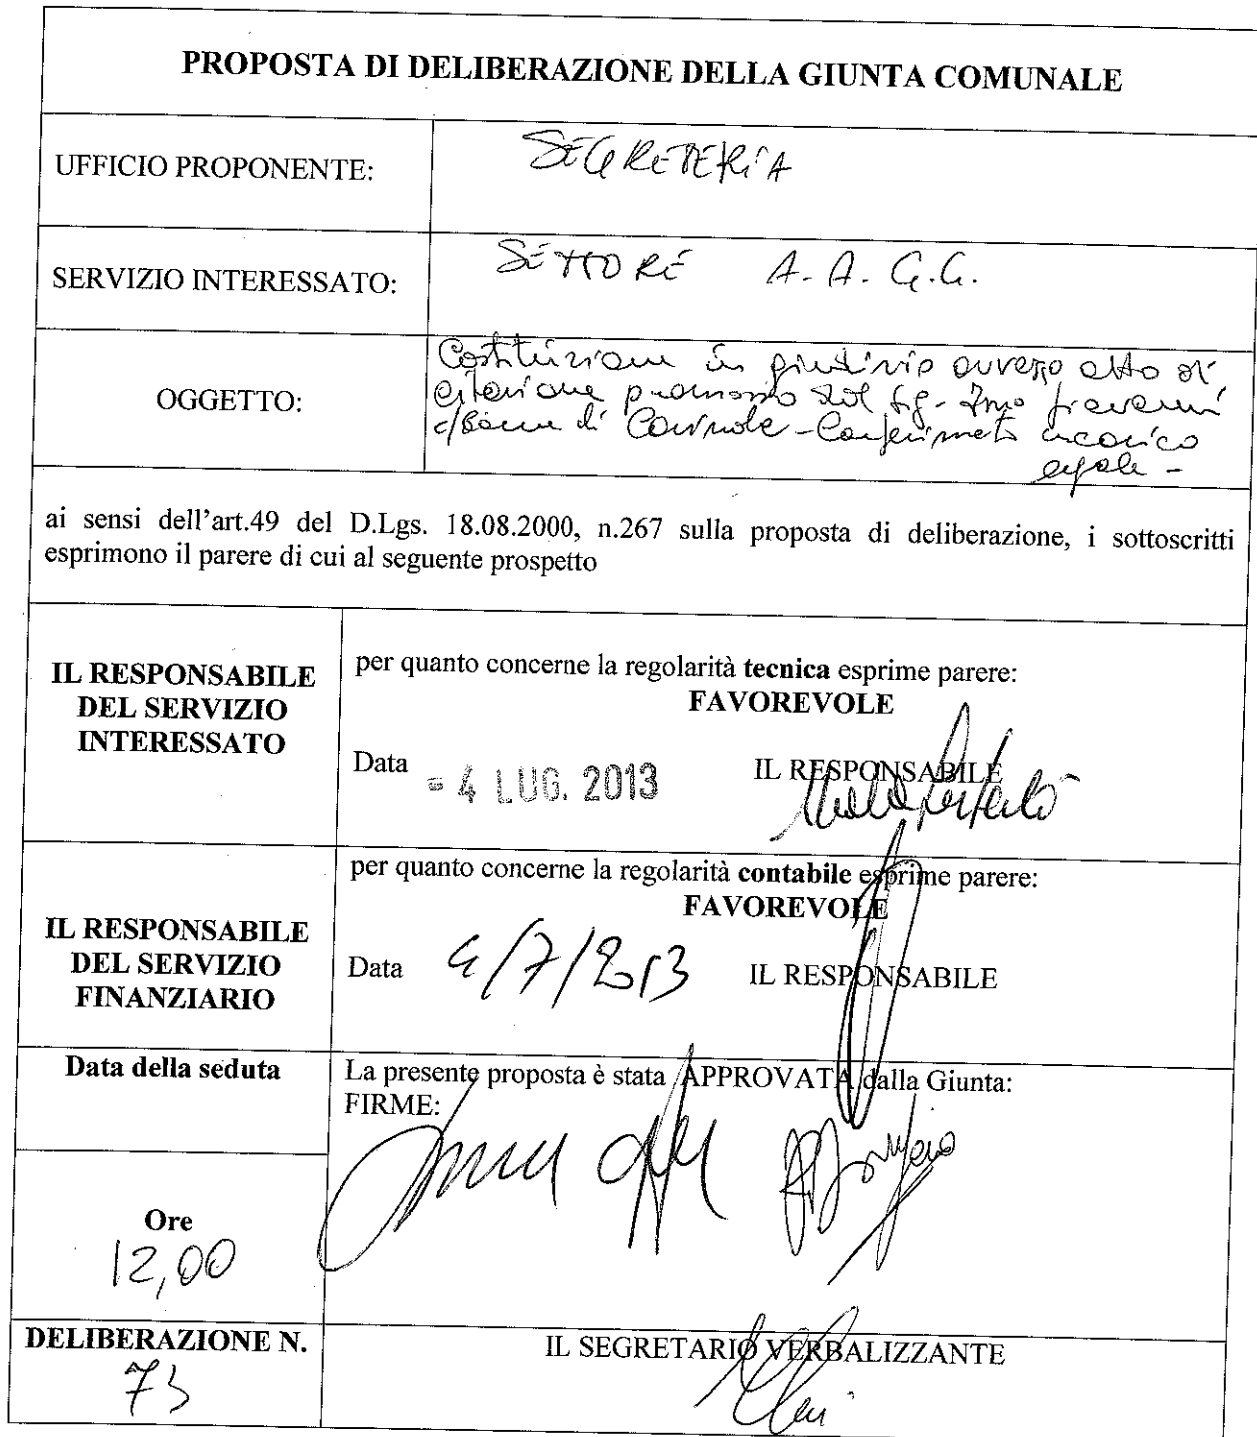 PROPOSTA DI DELIBERAZIONE DELLA GIUNTA COMUNALE
UFFICIO PROPONENTE:
SEGRETERIA
SERVIZIO INTERESSATO:
SETTORE A.A.G.G.
OGGETTO:
Costituzione in giudizio avverso atto di
citazione promosso dal sig.
c/ di - Conferimento incarico
legale -
ai sensi dell'art.49 del D.Lgs. 18.08.2000, n.267 sulla proposta di deliberazione, i sottoscritti
esprimono il parere di cui al seguente prospetto
IL RESPONSABILE
DEL SERVIZIO
INTERESSATO
per quanto concerne la regolarità tecnica esprime parere:
FAVOREVOLE
Data = 4 LUG. 2013 IL RESPONSABILE
IL RESPONSABILE
DEL SERVIZIO
FINANZIARIO
per quanto concerne la regolarità contabile esprime parere:
FAVOREVOLE
Data 4/7/2013 IL RESPONSABILE
Data della seduta
La presente proposta è stata APPROVATA dalla Giunta:
FIRME:
Ore
12,00
DELIBERAZIONE N.
73
IL SEGRETARIO VERBALIZZANTE